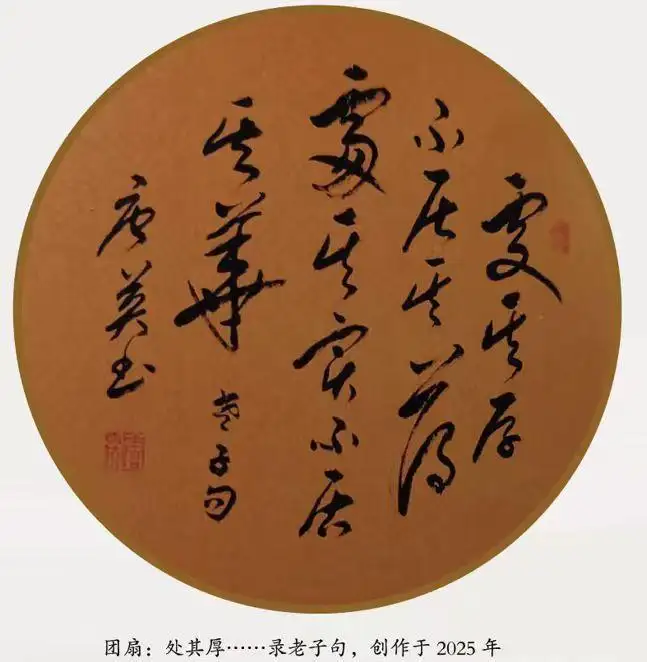 處其厚
不居其薄
處其實不居
其華
老子句
唐英书
团扇：处其厚……录老子句，创作于 2025 年